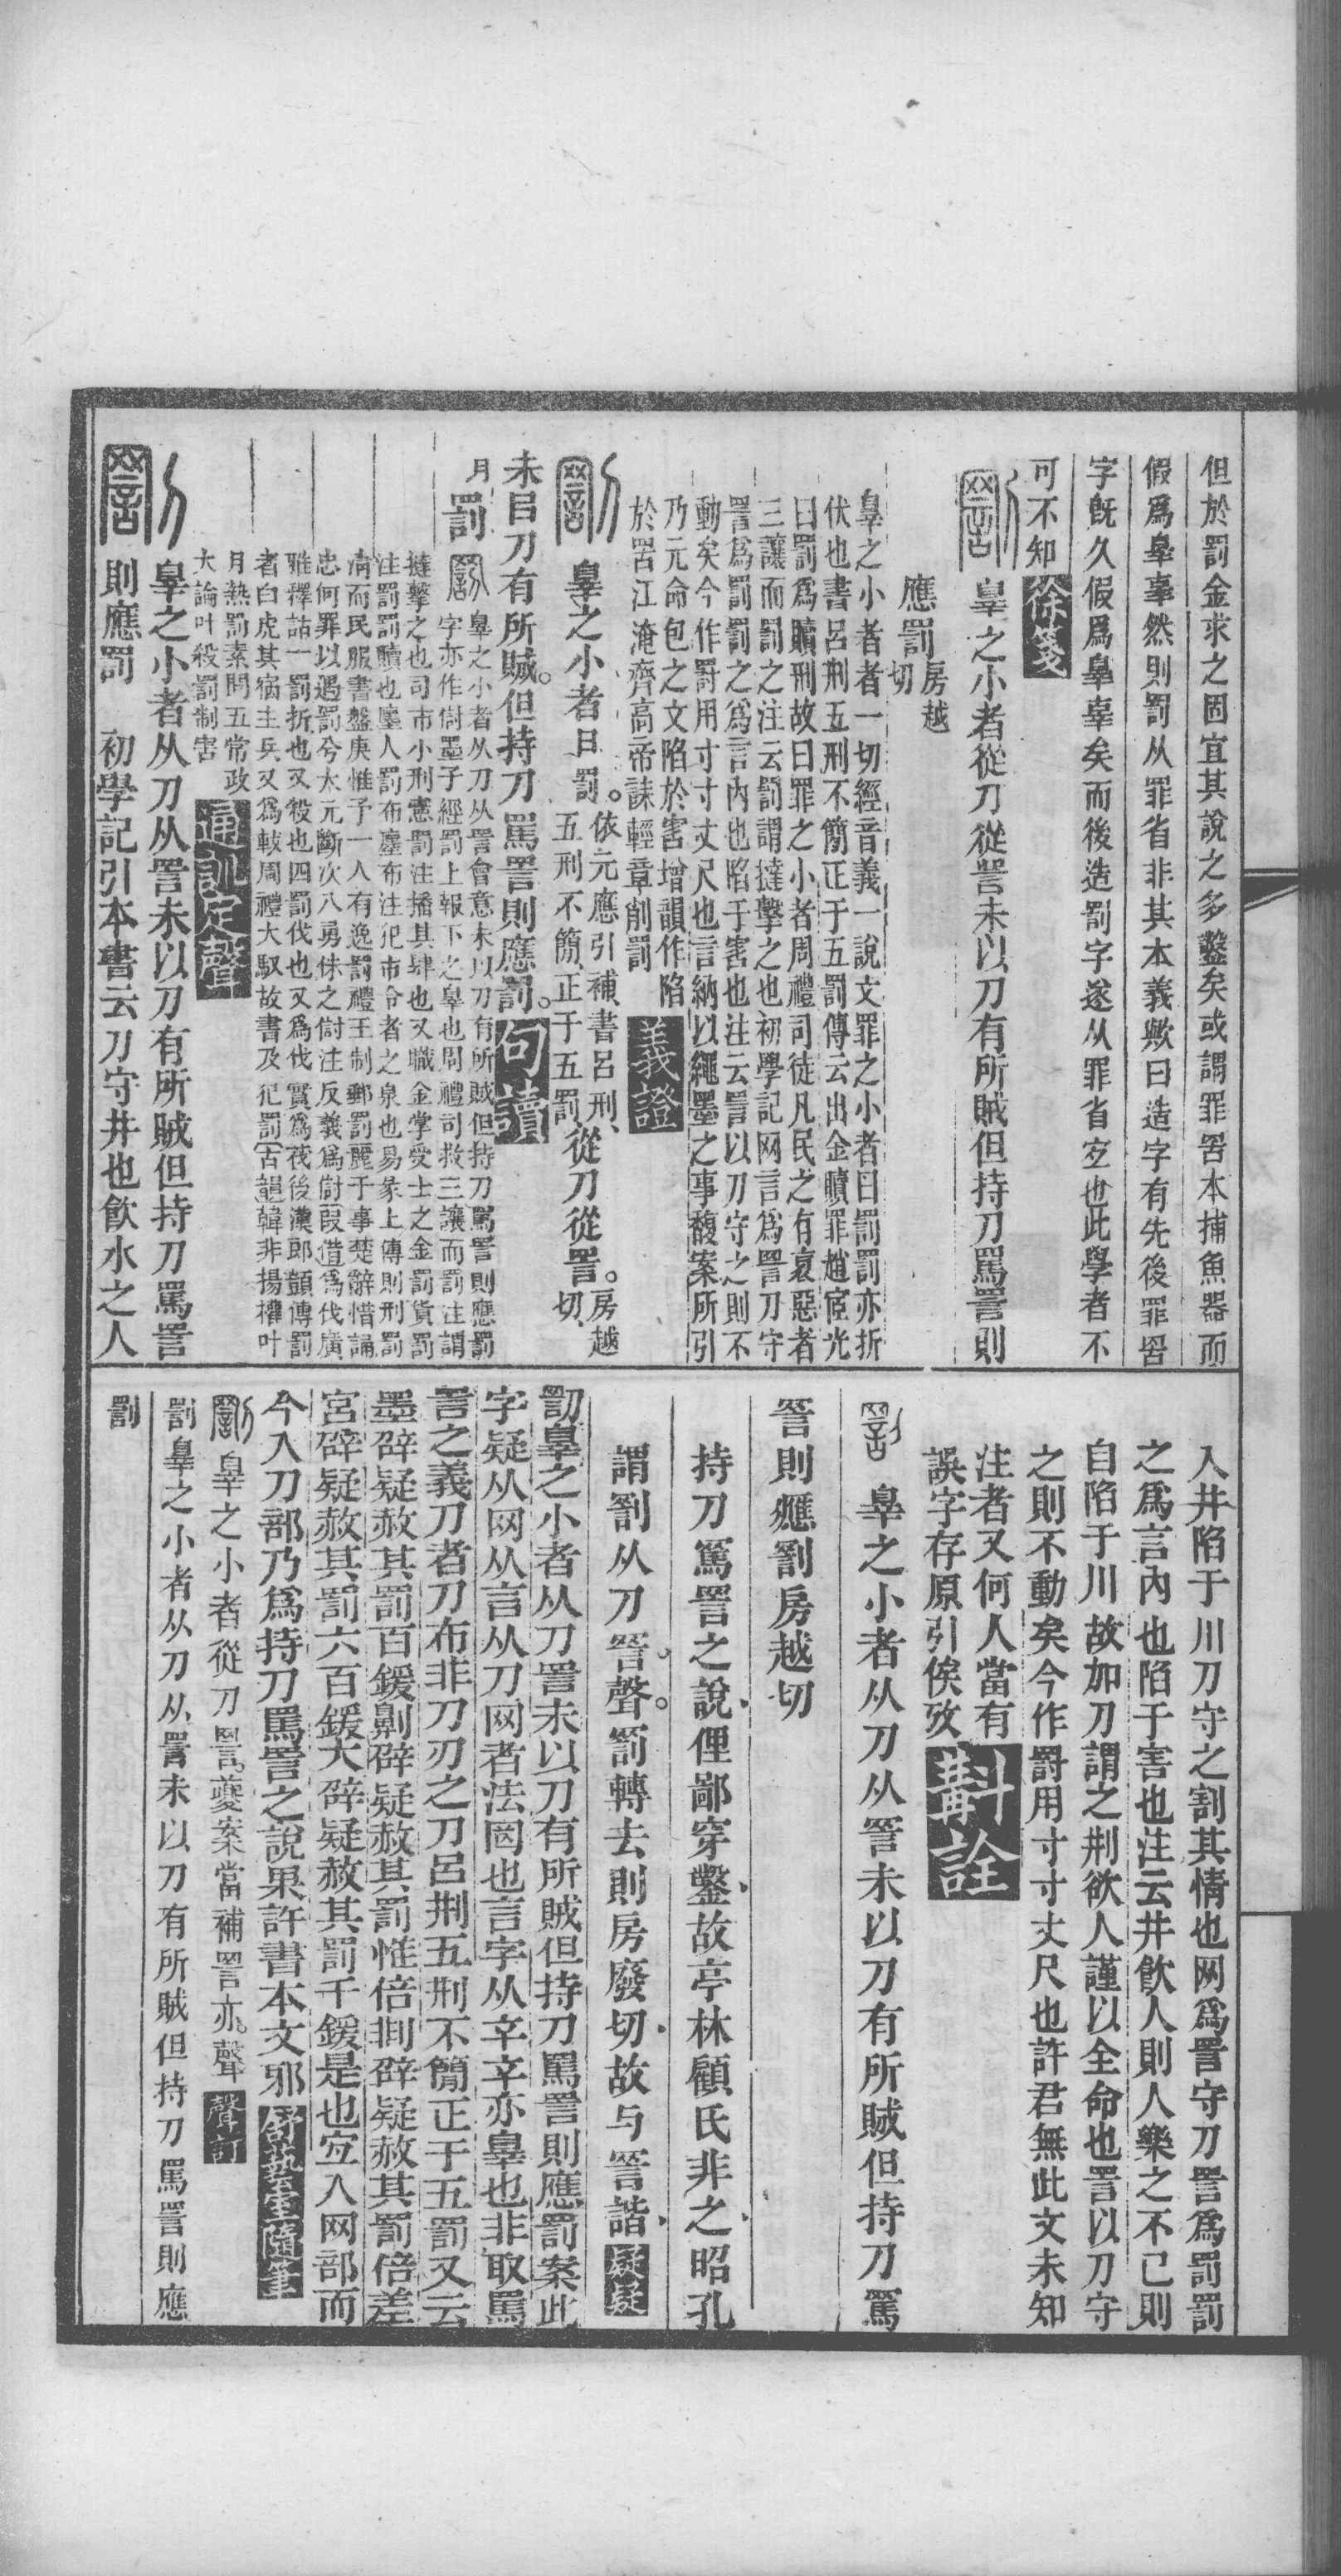 但於罰金求之固宜其說之多鑿矣或謂罪罟本捕魚器而
假爲辠辜然則罰从罪省非其本義歟曰造字有先後罪罟
字旣久假爲辠辜矣而後造罰字遂从罪省宐也此學者不
可不知徐箋
辠之小者從刀從詈未以刀有所賊但持刀罵詈則
應罰房越切
辠之小者者一切經音義一說文罪之小者曰罰罰亦折
伏也書呂刑五刑不簡正于五罰傳云出金贖罪趙宧光
曰罰爲贖刑故曰罪之小者周禮司徒凡民之有衺惡者
三讓而罰之注云罰謂撻擊之也初學記网言爲詈刀守
詈爲罰罰之爲言內也陷于害也注云詈以刀守之則不
動矣今作罸用寸寸丈尺也言納以繩墨之事馥案所引
乃元命包之文陷於害增韻作陷
於罟江淹齊高帝誄輕章削罰義證
辠之小者曰罰。依元應引補、書呂刑、五刑不簡、正于五罰、從刀從詈。房越切、
未㠯刀有所賊。但持刀罵詈則應罰。句讀
月
罰 辠之小者从刀从詈會意未以刀有所賊但持刀罵詈則應罰
字亦作㓽墨子經罰上報下之辠也周禮司救三讓而罰注謂
撻擊之也司市小刑憲罰注播其肆也又職金掌受士之金罰貨罰
注罰罰贖也廛人罰布廛布注犯市令者之泉也易彖上傳則刑罰
淸而民服書盤庚惟予一人有逸罰禮王制郵罰麗于事楚辭惜誦
忠何罪以遇罰兮太元斷次八勇侏之㓽注反義爲㓽叚借爲伐廣
雅釋詁一罰折也又殺也四罰伐也又爲伐實爲茷後漢郎顗傳罰
者白虎其宿主兵又爲軷周禮大馭故書及犯罰古韻韓非揚權叶
月熱罰素問五常政
大論叶殺罰制害通訓定聲
辠之小者从刀从詈未以刀有所賊但持刀罵詈
則應罰　初學記引本書云刀守井也飮水之人
入井陷于川刀守之割其情也网爲詈守刀詈爲罰罰
之爲言內也陷于害也注云井飮人則人樂之不已則
自陷于川故加刀謂之荆欲人謹以全命也詈以刀守
之則不動矣今作罸用寸寸丈尺也許君無此文未知
注者又何人當有
誤字存原引俟攷斠詮
辠之小者从刀从詈未以刀有所賊但持刀罵
詈則應罰房越切
持刀罵詈之說俚鄙穿鑿故亭林顧氏非之昭孔
謂罰从刀詈聲。罰轉去則房廢切故与詈諧疑疑
罰辠之小者从刀詈未以刀有所賊但持刀罵詈則應罰案此
字疑从网从言从刀网者法网也言字从䇂䇂亦辠也非取罵
言之義刀者刀布非刀刃之刀呂刑五刑不簡正于五罰又云
墨辟疑赦其罰百鍰劓辟疑赦其罰惟倍剕辟疑赦其罰倍差
宮辟疑赦其罰六百鍰大辟疑赦其罰千鍰是也宐入网部而
今入刀部乃爲持刀罵詈之說果許書本文邪舒蓺室隨筆
辠之小者從刀詈夔案當補詈亦聲聲訂
罰辠之小者从刀从詈未以刀有所賊但持刀罵詈則應
罰